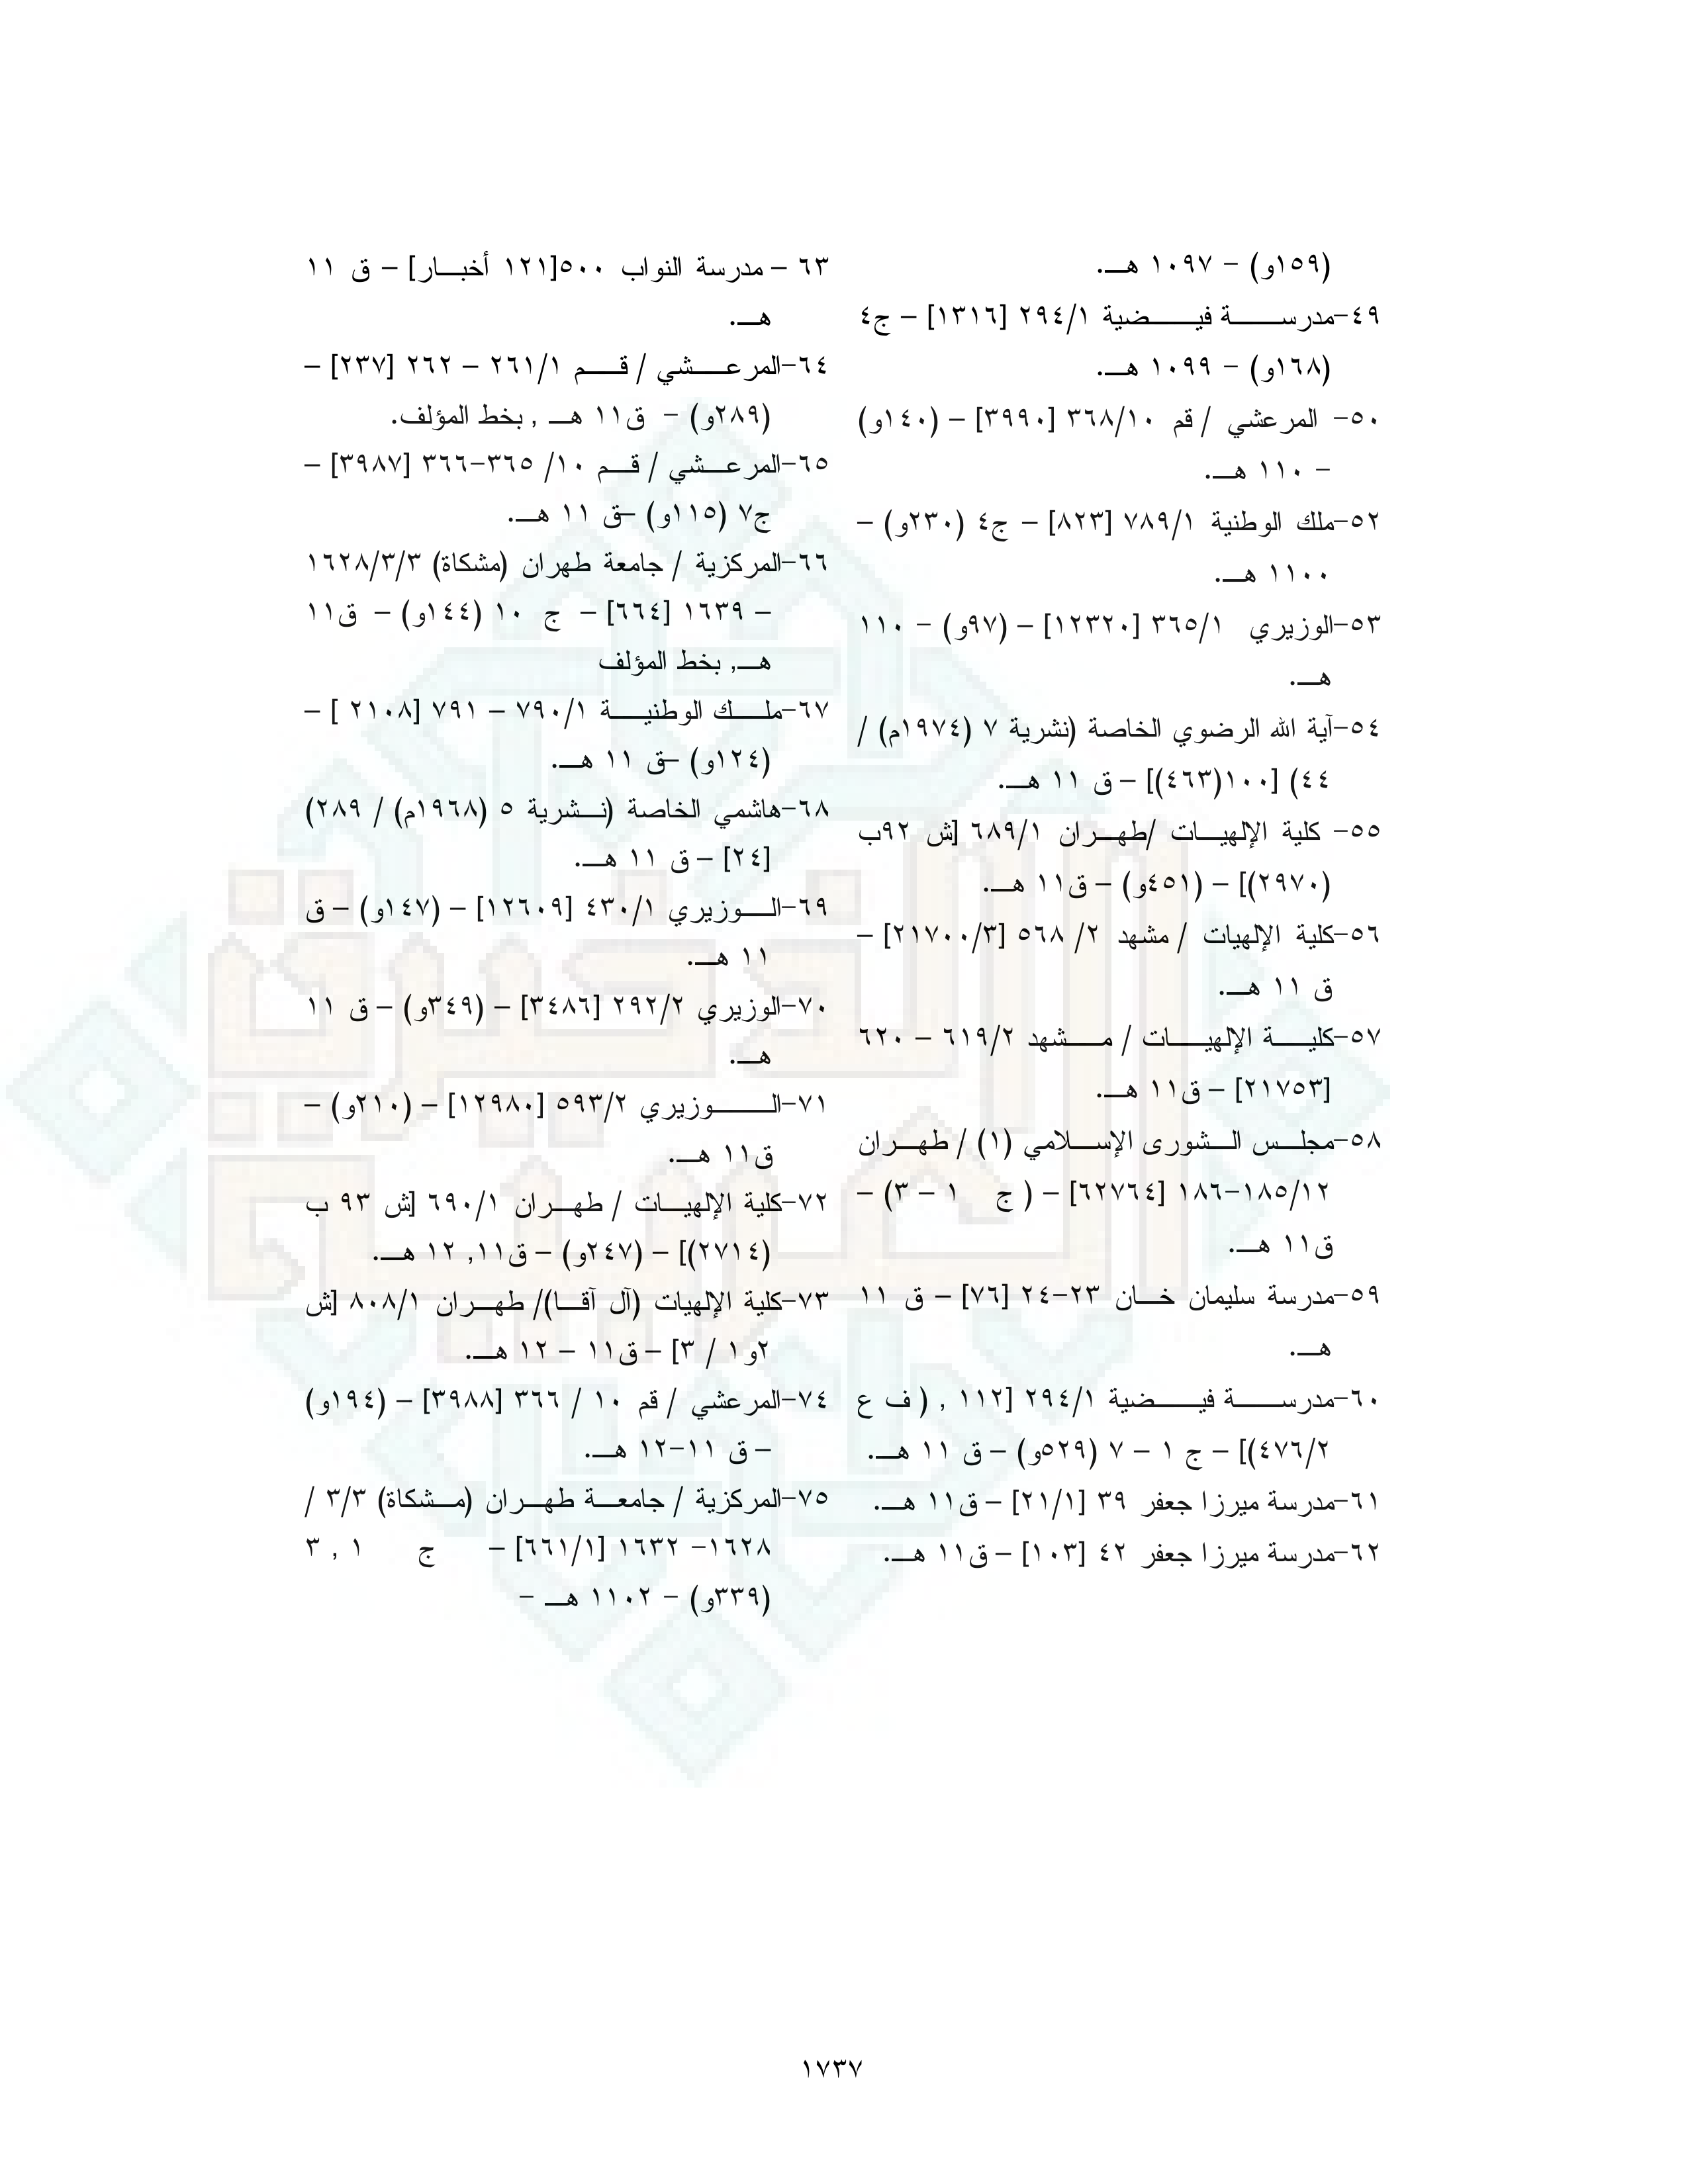 (١٥٩و) – ١٠٩٧ هـ.
٤٩-مدرسة فيضية ٢٩٤/١ [١٣١٦] – ج٤
(١٦٨و) – ١٠٩٩ هـ.
٥٠- المرعشي / قم ٣٦٨/١٠ [٣٩٩٠] – (١٤٠و)
– ١١٠ هـ.
٥٢-ملك الوطنية ٧٨٩/١ [٨٢٣] – ج٤ (٢٣٠و) –
١١٠٠ هـ.
٥٣-الوزيري ٣٦٥/١ [١٢٣٢٠] – (٩٧و) – ١١٠
هـ.
٥٤-آية الله الرضوي الخاصة (نشرية ٧ (١٩٧٤م) /
٤٤) [١٠٠(٤٦٣)] – ق ١١ هـ.
٥٥- كلية الإلهيات /طهران ٦٨٩/١ [ش ٩٢ب
(٢٩٧٠)] – (٤٥١و) – ق١١ هـ.
٥٦-كلية الإلهيات / مشهد ٢/ ٥٦٨ [٢١٧٠٠/٣] –
ق ١١ هـ.
٥٧-كلية الإلهيات / مشهد ٦١٩/٢ – ٦٢٠
[٢١٧٥٣] – ق١١ هـ.
٥٨-مجلس الشورى الإسلامي (١) / طهران
١٨٥/١٢-١٨٦ [٦٢٧٦٤] – ( ج ١ – ٣) –
ق١١ هـ.
٥٩-مدرسة سليمان خان ٢٣-٢٤ [٧٦] – ق ١١
هـ.
٦٠-مدرسة فيضية ٢٩٤/١ [١١٢ , ( ف ع
٤٧٦/٢)] – ج ١ – ٧ (٥٢٩و) – ق ١١ هـ.
٦١-مدرسة ميرزا جعفر ٣٩ [٢١/١] – ق١١ هـ.
٦٢-مدرسة ميرزا جعفر ٤٢ [١٠٣] – ق١١ هـ.
٦٣ – مدرسة النواب ٥٠٠[١٢١ أخبار] – ق ١١
هـ.
٦٤-المرعشي / قم ٢٦١/١ – ٢٦٢ [٢٣٧] –
(٢٨٩و) – ق١١ هـ , بخط المؤلف.
٦٥-المرعشي / قم ١٠/ ٣٦٥-٣٦٦ [٣٩٨٧] –
ج٧ (١١٥و) –ق ١١ هـ.
٦٦-المركزية / جامعة طهران (مشكاة) ١٦٢٨/٣/٣
– ١٦٣٩ [٦٦٤] – ج ١٠ (١٤٤و) – ق١١
هـ, بخط المؤلف
٦٧-ملك الوطنية ٧٩٠/١ – ٧٩١ [٢١٠٨ ] –
(١٢٤و) –ق ١١ هـ.
٦٨-هاشمي الخاصة (نشرية ٥ (١٩٦٨م) / ٢٨٩)
[٢٤] – ق ١١ هـ.
٦٩-الوزيري ٤٣٠/١ [١٢٦٠٩] – (١٤٧و) – ق
١١ هـ.
٧٠-الوزيري ٢٩٢/٢ [٣٤٨٦] – (٣٤٩و) – ق ١١
هـ.
٧١-الوزيري ٥٩٣/٢ [١٢٩٨٠] – (٢١٠و) –
ق١١ هـ.
٧٢-كلية الإلهيات / طهران ٦٩٠/١ [ش ٩٣ ب
(٢٧١٤)] – (٢٤٧و) – ق١١, ١٢ هـ.
٧٣-كلية الإلهيات (آل آقا)/ طهران ٨٠٨/١ [ش
٢و١ / ٣] – ق١١ – ١٢ هـ.
٧٤-المرعشي / قم ١٠ / ٣٦٦ [٣٩٨٨] – (١٩٤و)
– ق ١١-١٢ هـ.
٧٥-المركزية / جامعة طهران (مشكاة) ٣/٣ /
١٦٢٨- ١٦٣٢ [٦٦١/١] – ج ١ , ٣
(٣٣٩و) – ١١٠٢ هـ –
١٧٣٧